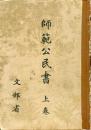 師範公民書 上巻
文部省